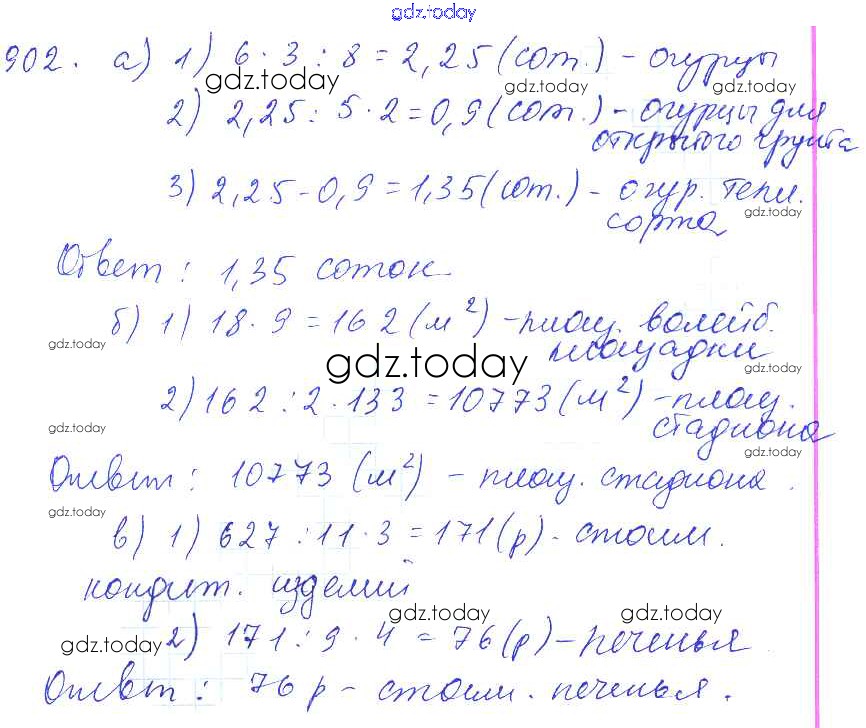 gdz.today
902. а) 1) 6 · 3 : 8 = 2,25 (сот.) - огурцы
gdz.today gdz.today
2) 2,25 : 5 · 2 = 0,9 (сот.) - огурцы для
открытого грунта
3) 2,25 - 0,9 = 1,35 (сот.) - огур. тепл.
сорта
gdz.today
Ответ: 1,35 соток
б) 1) 18 · 9 = 162 (м²) - площ. волейб.
площадки
gdz.today gdz.today gdz.today
2) 162 : 2 · 133 = 10773 (м²) - площ.
стадиона
gdz.today gdz.today
Ответ: 10773 (м²) - площ. стадиона.
gdz.today
в) 1) 627 : 11 · 3 = 171 (р) - стоим.
кондит. изделий
gdz.today gdz.today gdz.today
2) 171 : 9 · 4 = 76 (р) - печенья
Ответ: 76 р - стоим. печенья.